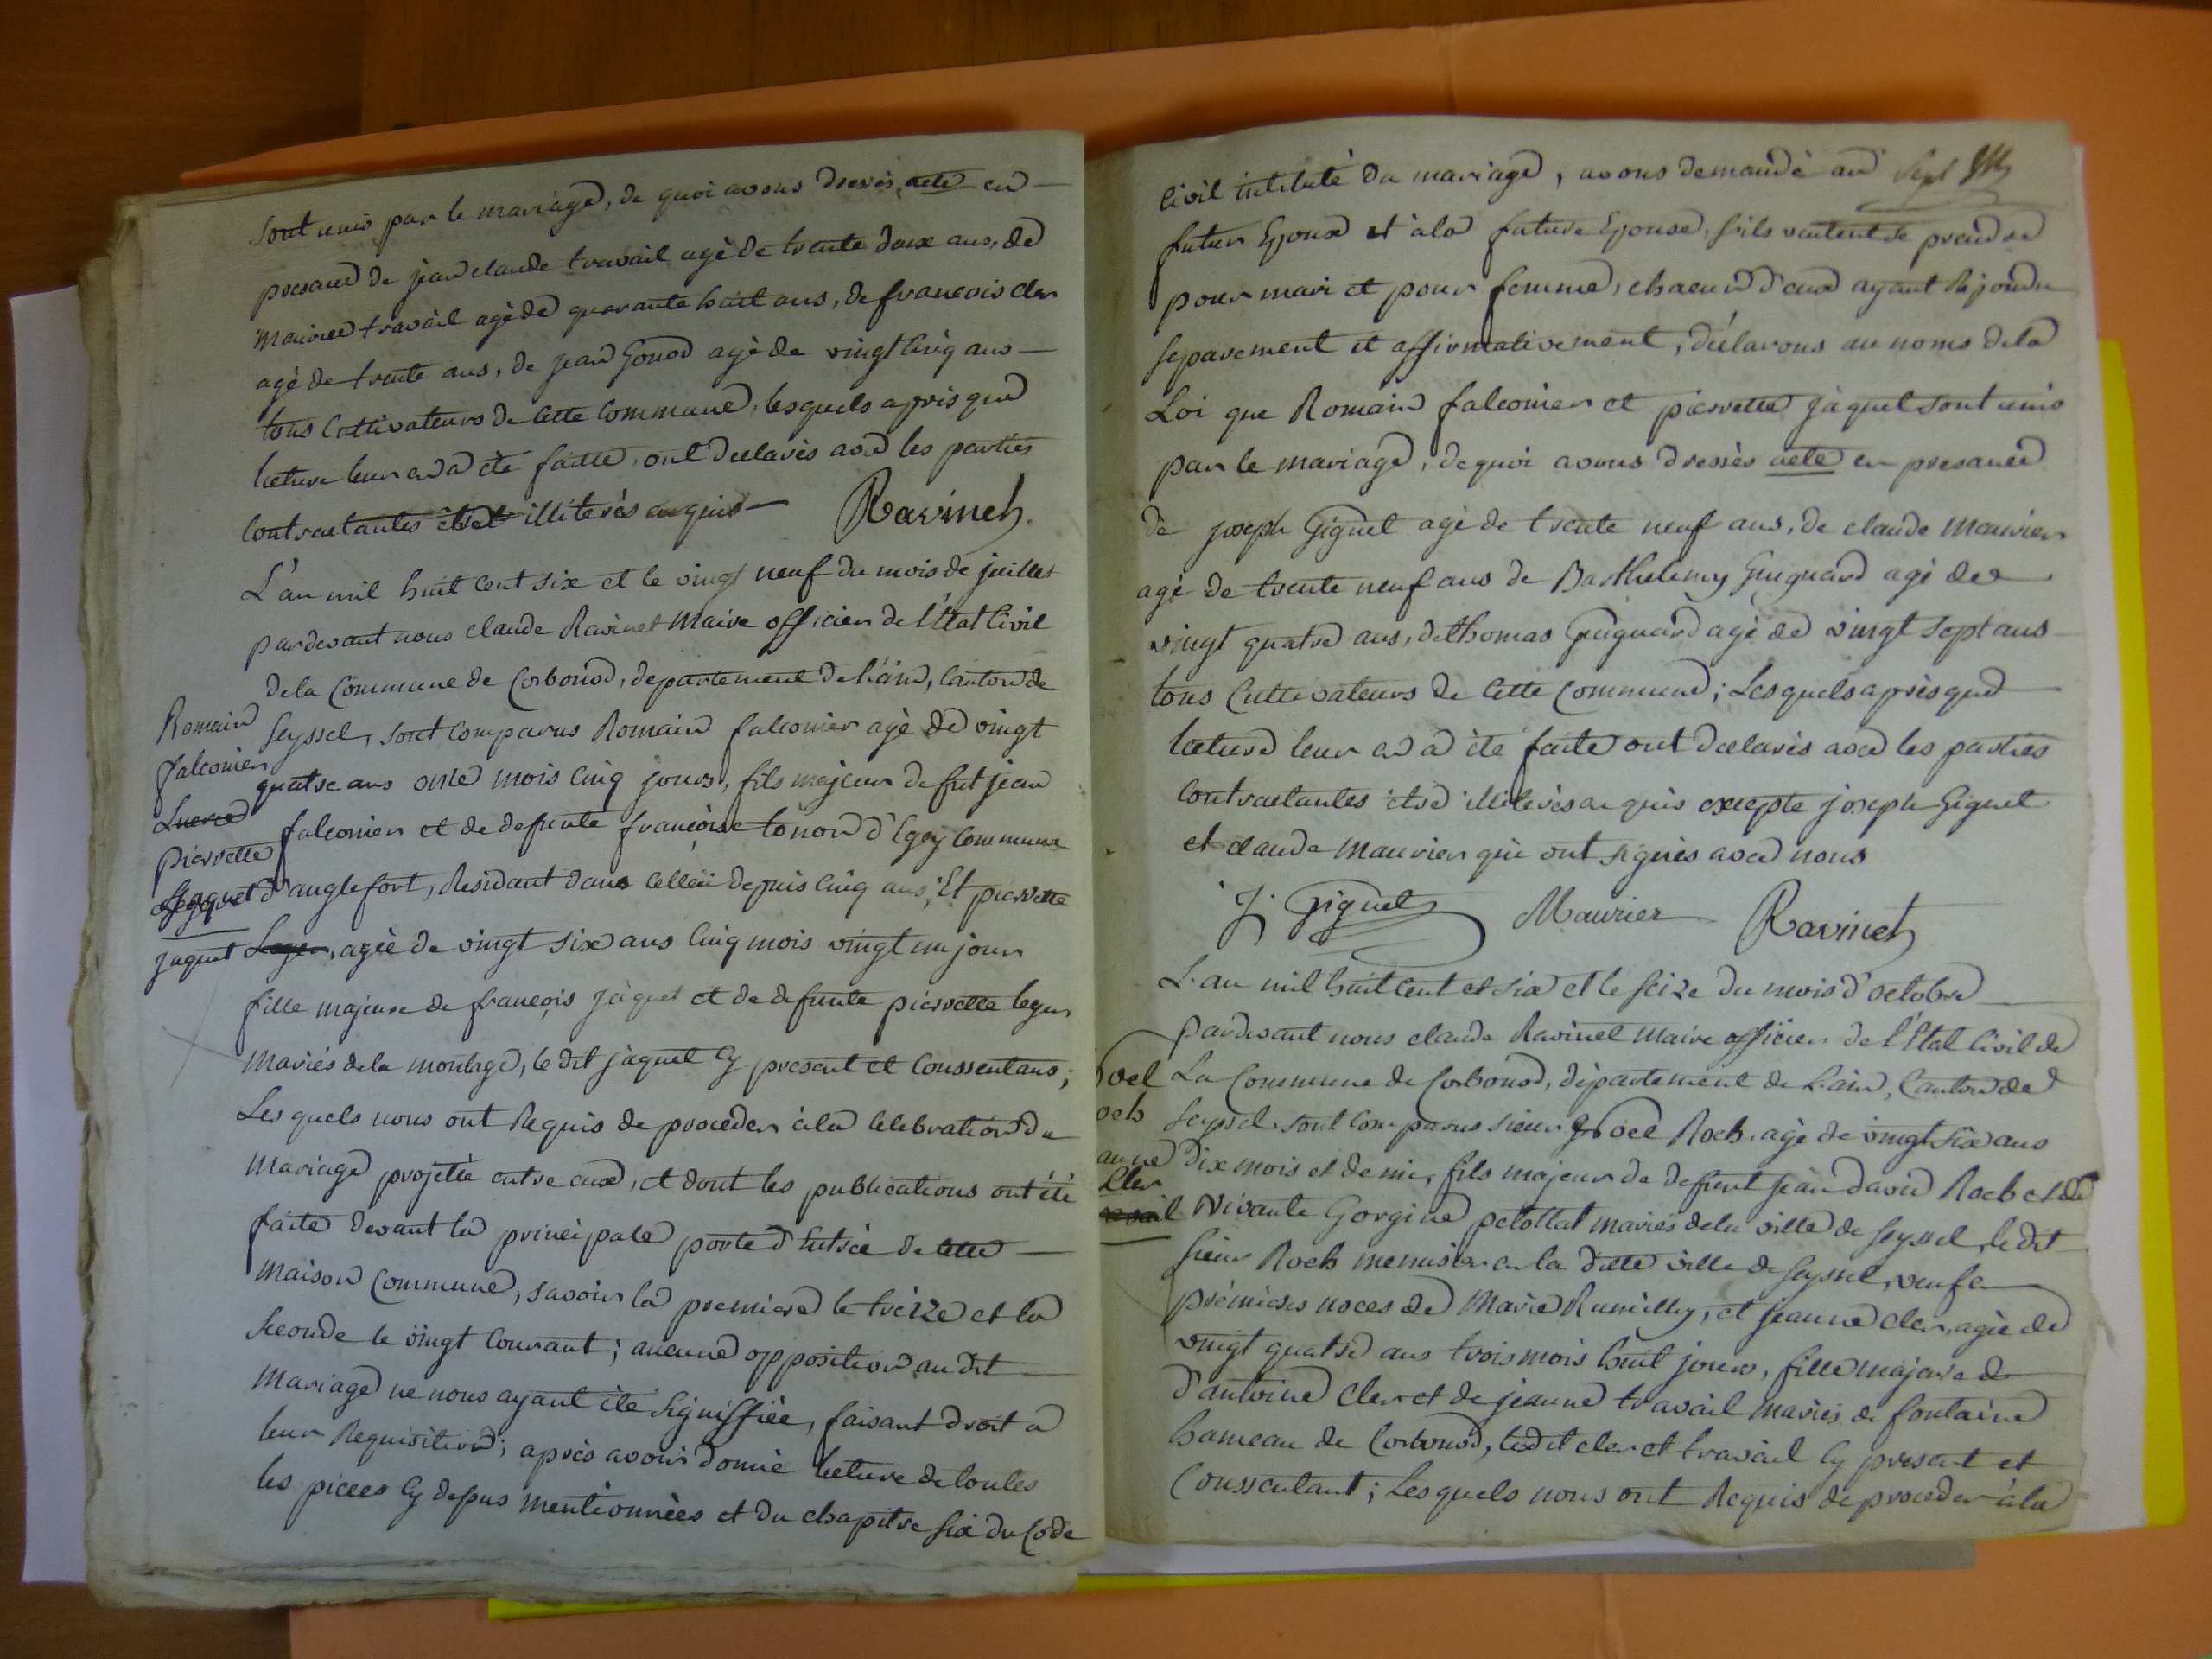 sont unis par le mariage, de quoi avons dressés acte en
presance de jean claude travail agé de trente deux ans, de
Maurice travail agé de quarante huit ans, de francois cler
agé de trente ans, de jean Gonod agé de vingt cinq ans
tous Cultivateurs de Cette Commune, lesquels apris que
lecture leur en a été faitte, ont declarés avec les parties
Contractantes être illiterés
Ravinet
L'an mil huit Cent six et le vingt neuf du mois de juillet
pardevant nous claude Ravinet Maire officier de l'état Civil
de la Commune de Corbonod, departement de l'ain, Canton de
Seyssel, sont Comparus Romain falconier agé de vingt
quatre ans onze mois Cinq jours, fils majeur de fut jean
falconier et de defunte françoise tonon d'Egey Commune
d'anglefort, Residant dans Celleci depuis Cinq ans; Et pierrette
, agée de vingt six ans Cinq mois vingt un jour
fille majeure de françois jaquet et de defunte pierrette leger
Mariés de la montage, le dit jaquet Cy present et Conssentans;
Les quels nous ont Requis de proceder à la Celebration du
Mariage projetée entre eux, et dont les publications ont été
faite devant la principale porte d'Entrée de
Maison Commune, savoir la premiere le treize et la
seconde le vingt Courant; aucune opposition au dit
Mariage ne nous ayant été signiffiée, faisant droit a
leur Requisition; après avoir donné lecture de toutes
les pieces Cy depus mentionnées et du chapitre six du Code
Romain
falconier
pierrette
jaquet
Civil intitulé du mariage, avons demandé au
Sept
futur Epoux et à la future Epouse, s'ils veulent se prendre
pour mari et pour femme, chacun d'eux ayant Repondu
separement et affirmativement, déclarons au noms de la
Loi que Romain falconier et pierrette jaquet sont unis
par le mariage, de quoi avons dressés acte en presance
de joseph Giguet agé de trente neuf ans, de claude Maurier
agé de trente neuf ans de Barthelemy Guignard agé de
vingt quatre ans, de thomas Guignard agé de vingt sept ans
tous Cultivateurs de Cette Commune; Lesquels après que
lecture leur en a été faite ont declarés avec les parties
Contractantes être illiterés excepte joseph Giguet
et claude Maurier qui ont signés avec nous
J. Giguet Maurier Ravinet
L'an mil huit Cent et six et le seize du mois d'octobre
pardevant nous claude Ravinet Maire officier de l'Etat Civil de
La Commune de Corbonod, département de L'ain, Canton de
Seyssel sont Comparus sieur Noel Roch agé de vingt six ans
dix mois et demi, fils majeur de defunt jean david Roch et de
vivante Gorgine petollat mariés de la ville de Seyssel, le dit
sieur Roch menuisier en la ditte ville de Seyssel, veuf en
prémieres noces de Marie Rumilly, et jeanne cler, agée de
vingt quatre ans trois mois huit jours, fille majeure de
d'antoine Cler et de jeanne travail mariés de fontaine
hameau de Corbonod, ledit cler et travail Cy present et
Conssentant; Lesquels nous ont Requis de proceder à la
oel
och
anne
Cler